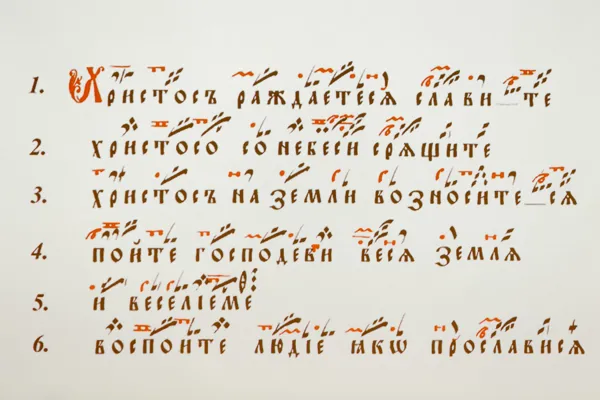 1. Христосъ раждаетеся слави_те
2. христосо со небеси срящите
3. христосъ на земли возносите_ся
4. пойте господеви веся земля
5. и веселіеме
6. воспоите людіе ꙗкѡ прославися